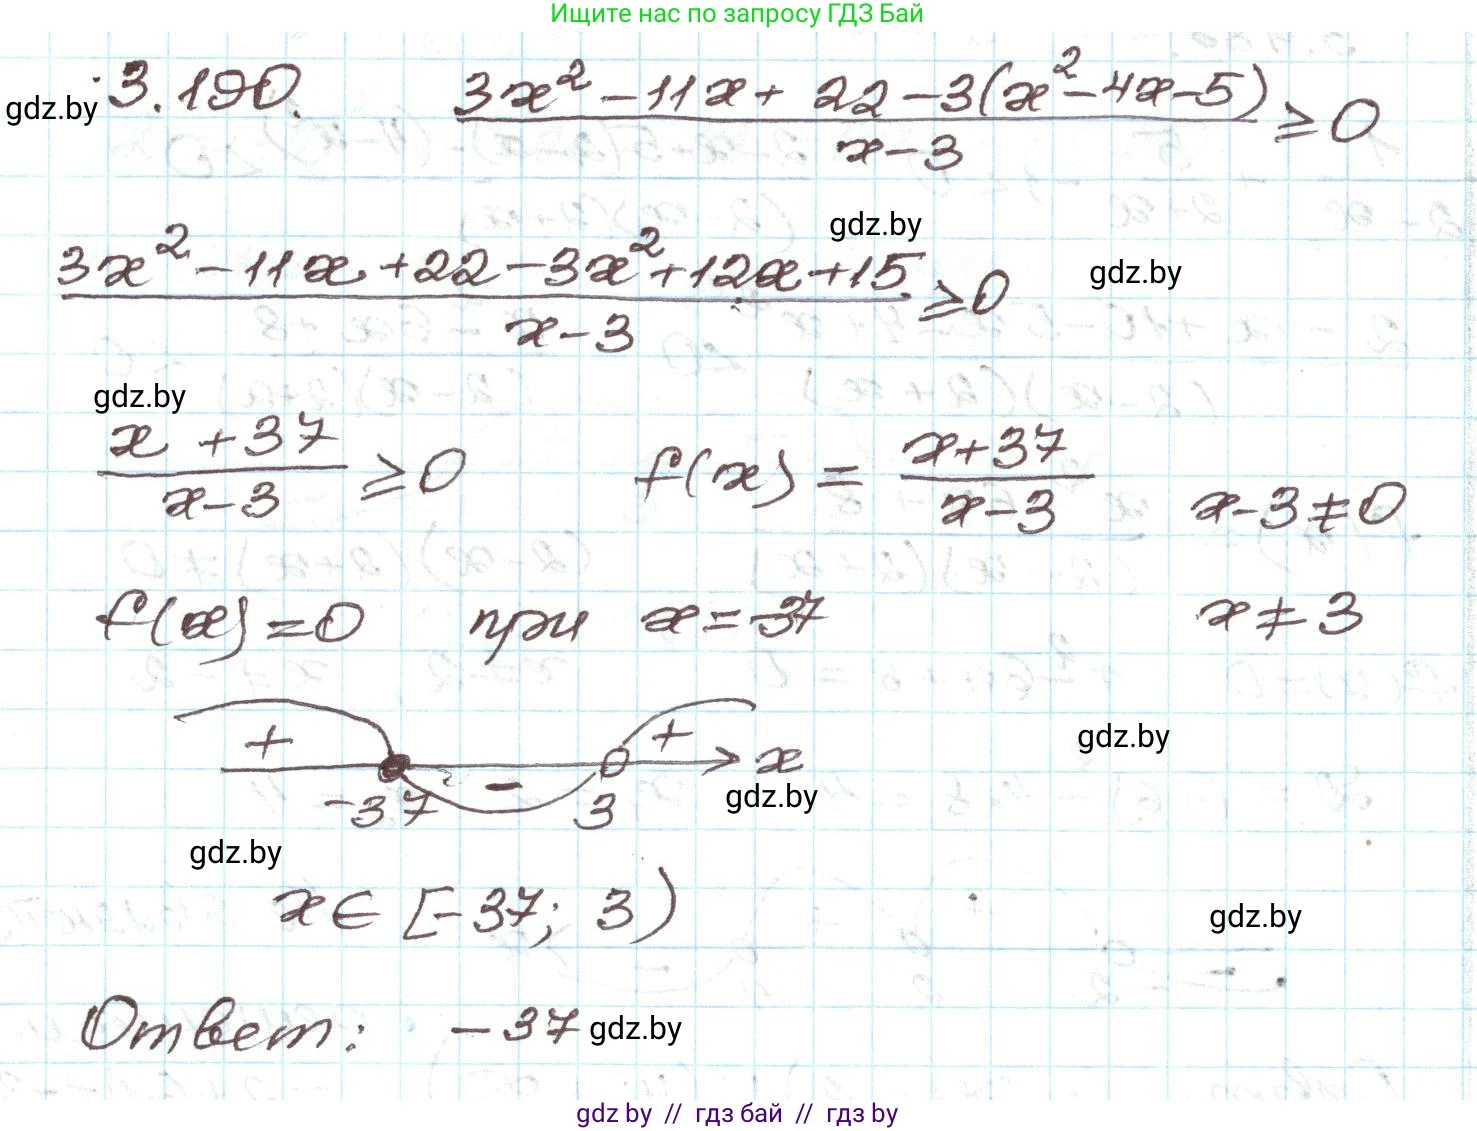 Ищите нас по запросу ГДЗ Бай
gdz.by 3.190. (3x² - 11x + 22 - 3(x² - 4x - 5))/(x - 3) ≥ 0
gdz.by
(3x² - 11x + 22 - 3x² + 12x + 15)/(x - 3) ≥ 0 gdz.by
gdz.by
(x + 37)/(x - 3) ≥ 0 f(x) = (x + 37)/(x - 3) x - 3 ≠ 0
f(x) = 0 при x = -37 x ≠ 3
+ - + x gdz.by
-37 3 gdz.by
gdz.by
x ∈ [-37; 3) gdz.by
Ответ: -37 gdz.by
gdz by // гдз бай // гдз by